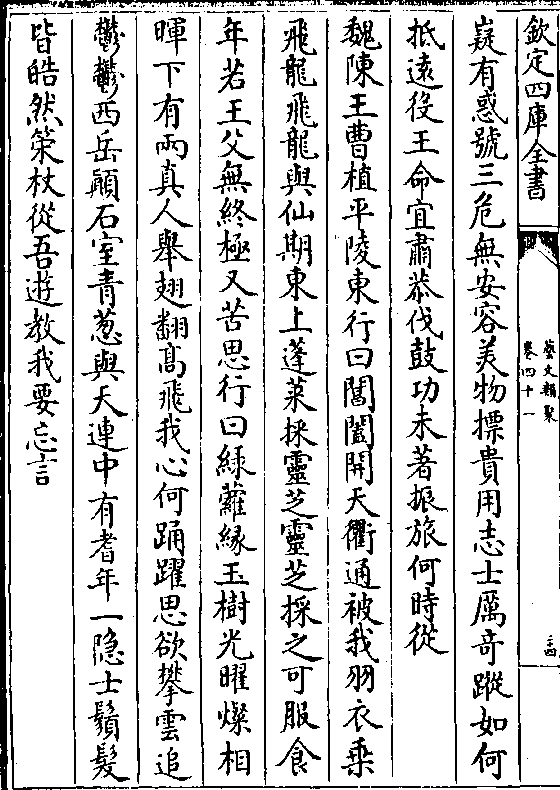 欽定四庫全書
藝文類聚
卷四十一
三四
嶷有惑號三危無安容美物標貴用志士厲奇蹤如何
抵遠役王命宜肅恭伐鼓功未著振旅何時從
魏陳王曹植平陵東行曰閶闔開天衢通被我羽衣乗
飛龍飛龍與仙期東上蓬萊採靈芝靈芝採之可服食
年若王父無終極又苦思行曰緑蘿縁玉樹光曜燦相
暉下有兩真人舉翅翻高飛我心何踊躍思欲攀雲追
鬱鬱西岳巓石室青葱與天連中有耆年一隠士鬚髮
皆皓然策杖從吾遊教我要忘言